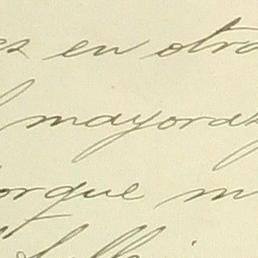 es en otra
mayoraz
orque m